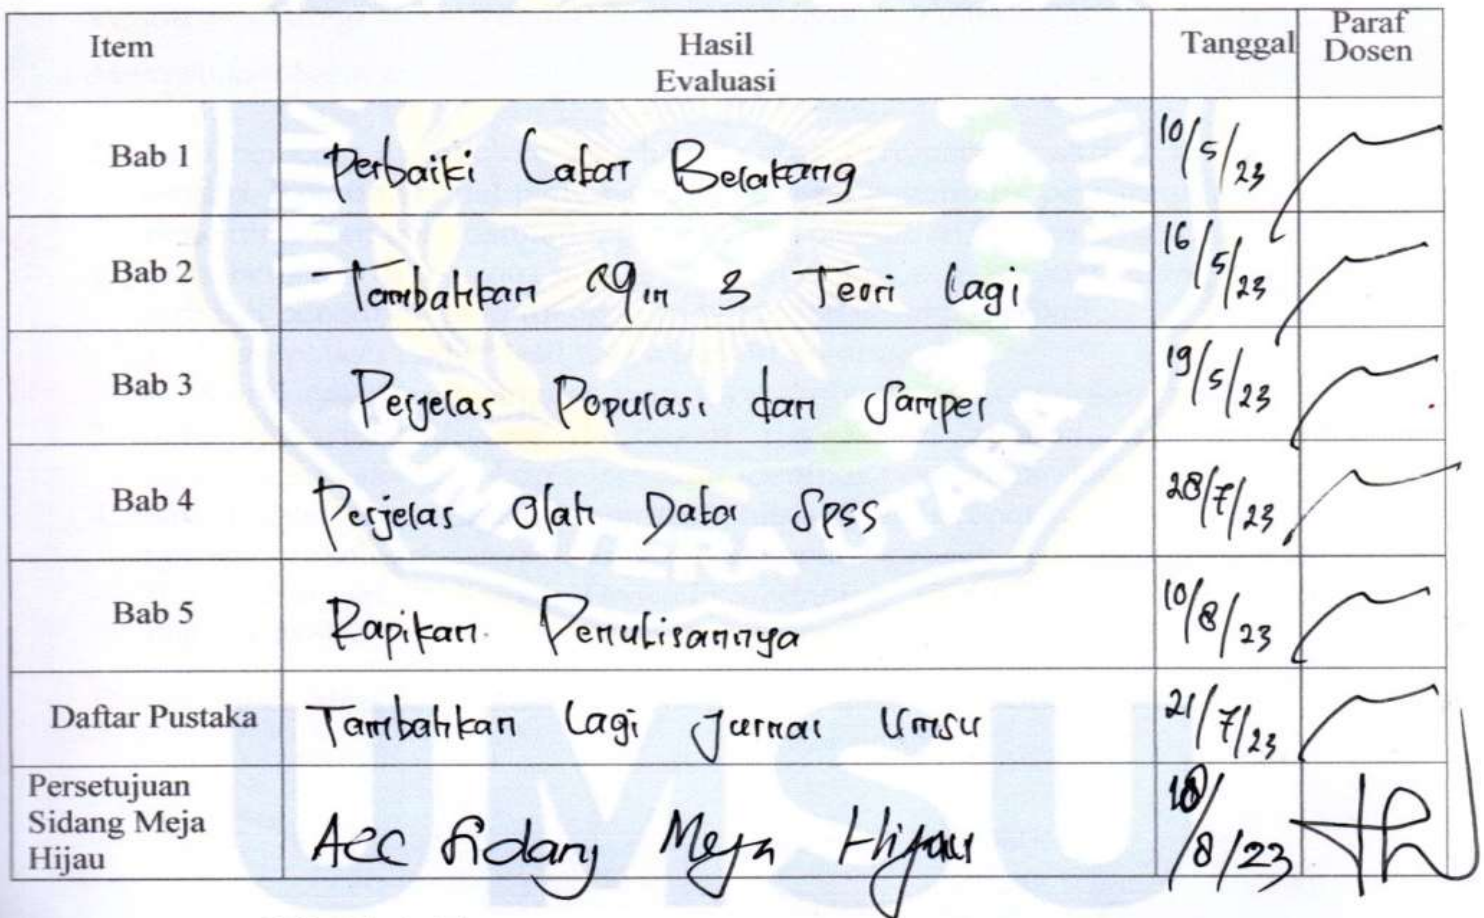 Item Hasil Evaluasi Tanggal Paraf Dosen
Bab 1 Perbaiki Latar Belakang 10/5/23
Bab 2 Tambahkan 3 Teori Lagi 16/5/23
Bab 3 Perjelas Populasi dan Sampel 19/5/23
Bab 4 Perjelas Olah Data Spss 28/7/23
Bab 5 Rapikan Penulisannya 10/8/23
Daftar Pustaka Tambahkan Lagi Jurnal Umsu 21/7/23
Persetujuan
Sidang Meja
Hijau
Acc Sidang Meja Hijau /8/23
SUMATERA UTARA
UMSU